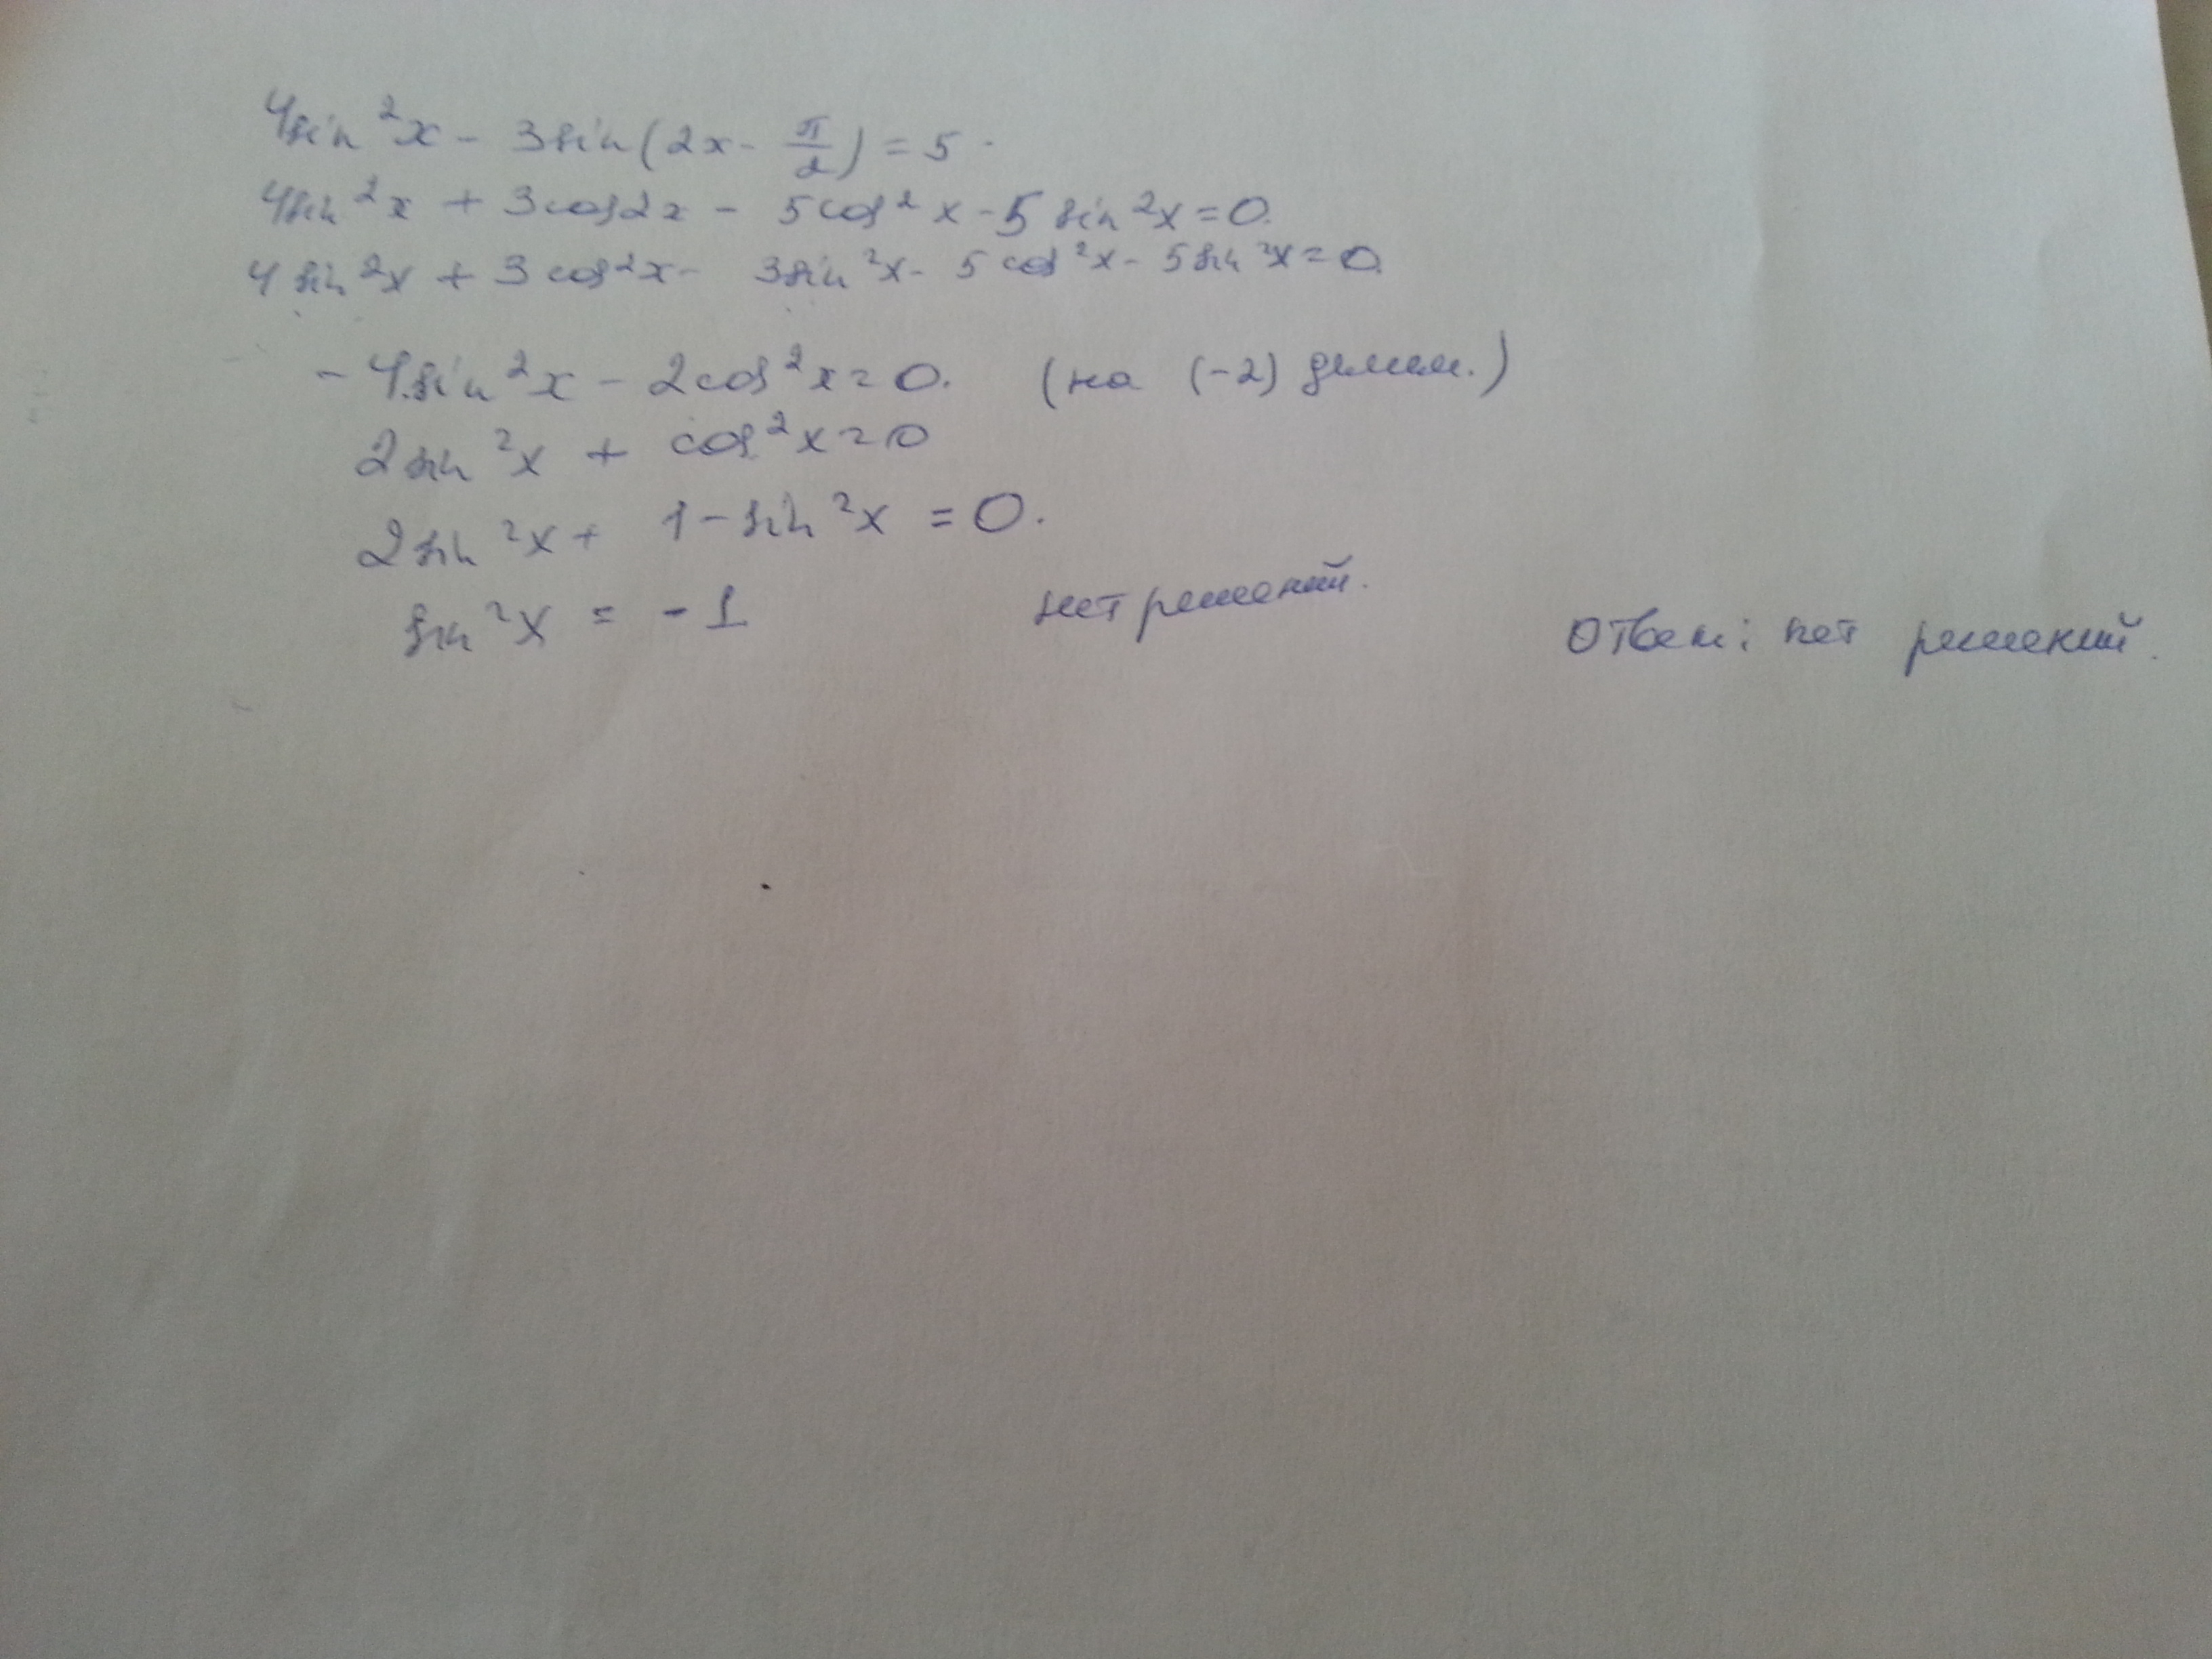 4sin²x - 3sin(2x - π/2) = 5.
4sin²x + 3cos2x - 5cos²x - 5sin²x = 0.
4sin²x + 3cos²x - 3sin²x - 5cos²x - 5sin²x = 0.
- 4sin²x - 2cos²x = 0. (на (-2) делим.)
2sin²x + cos²x = 0
2sin²x + 1 - sin²x = 0.
sin²x = - 1 нет решений.
Ответ: нет решений.